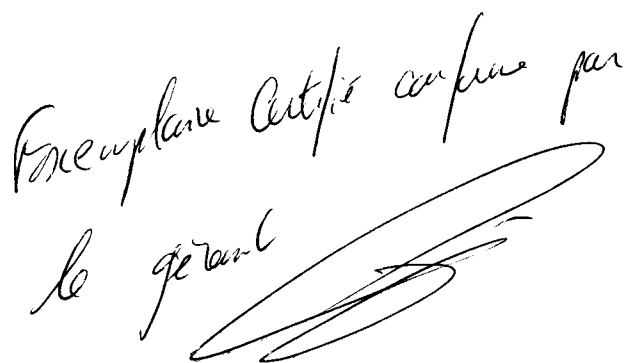 Exemplaire Certifié conforme par
le gérant